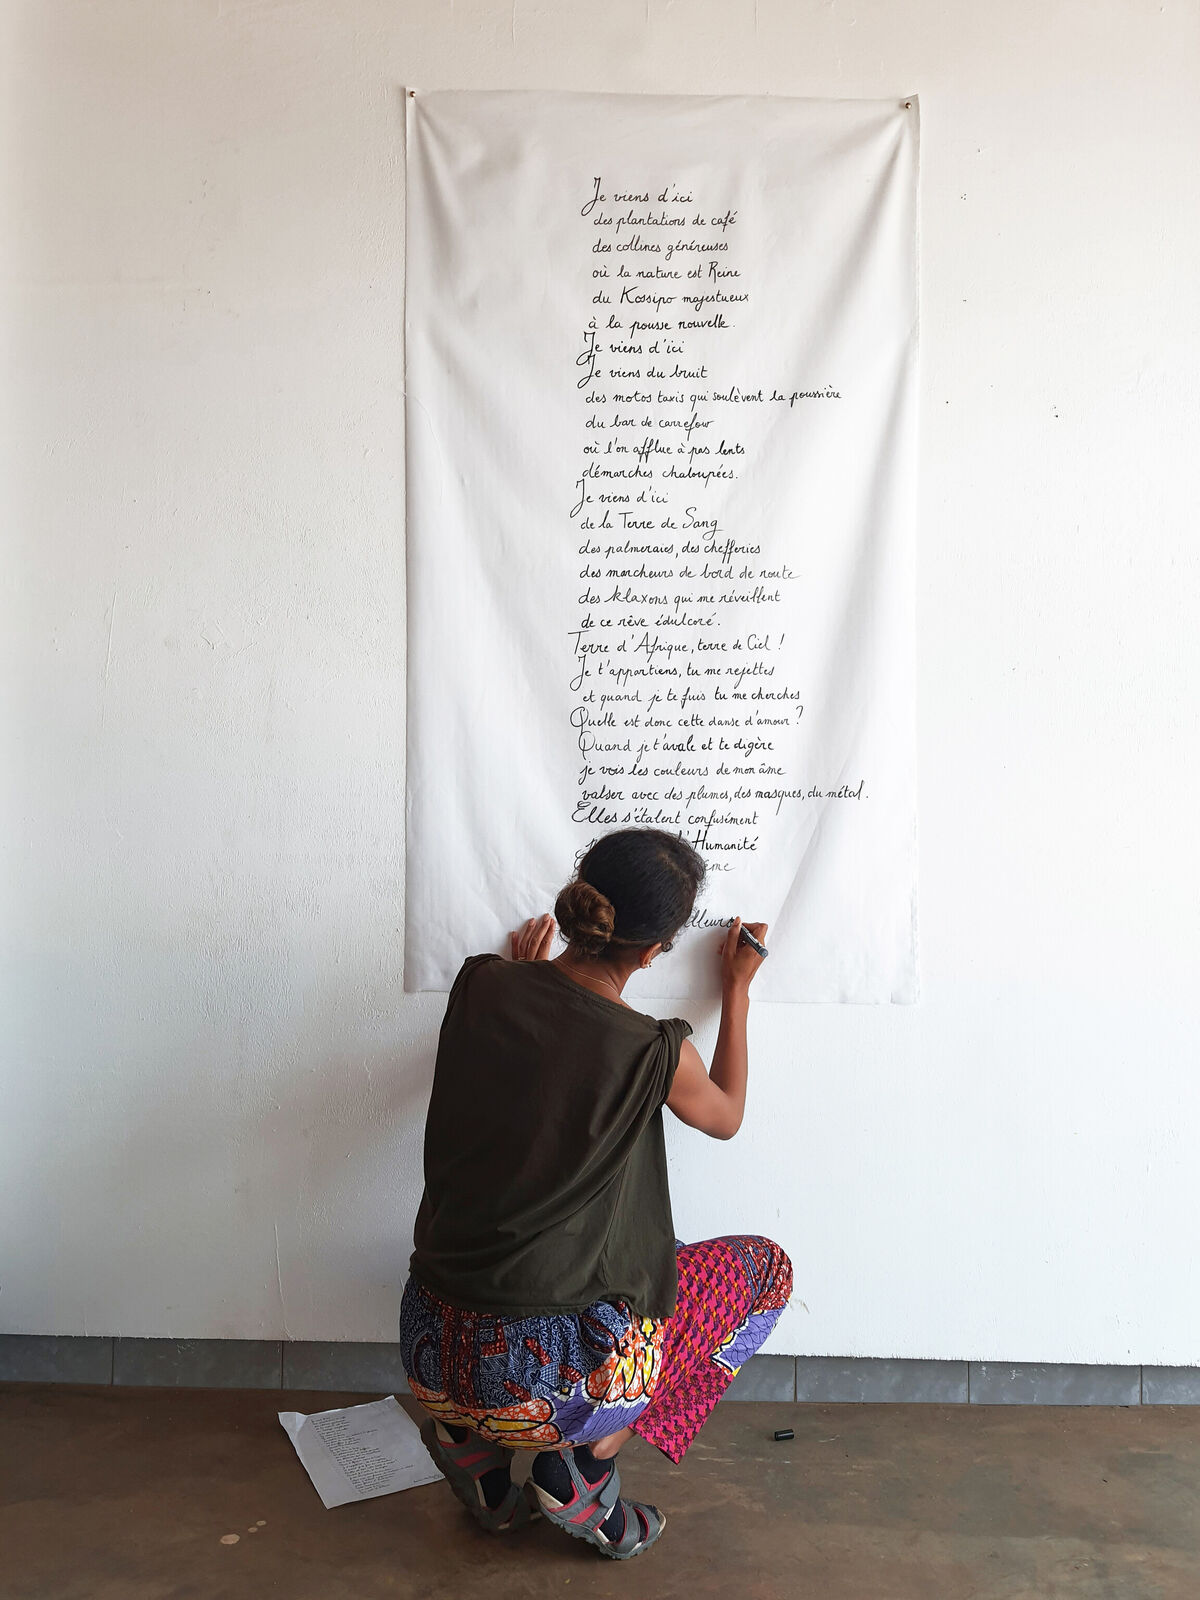 Je viens d'ici
des plantations de café
des collines généreuses
où la nature est Reine
du Kossipo majestueux
à la pousse nouvelle.
Je viens d'ici
Je viens du bruit
des motos taxis qui soulèvent la poussière
du bar de carrefour
où l'on afflue à pas lents
démarches chaloupées.
Je viens d'ici
de la Terre de Sang
des palmeraies, des chefferies
des marcheurs de bord de route
des klaxons qui me réveillent
de ce rêve édulcoré.
Terre d'Afrique, terre de Ciel !
Je t'appartiens, tu me rejettes
et quand je te fuis tu me cherches
Quelle est donc cette danse d'amour ?
Quand je t'avale et te digère
je vois les couleurs de mon âme
valser avec des plumes, des masques, du métal.
Elles s'étalent confusément
l'Humanité